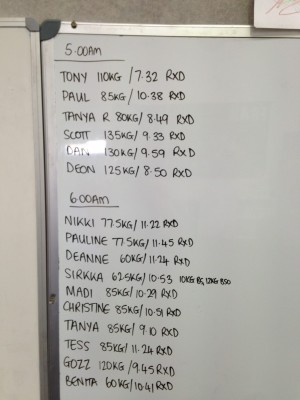 5.00AM
TONY 110KG / 7.32 RXD
PAUL 85KG / 10.38 RXD
TANYA R 80KG / 8.49 RXD
SCOTT 135KG / 9.33 RXD
DAN 130KG / 9.59 RXD
DEON 125KG / 8.50 RXD
6.00AM
NIKKI 77.5KG / 11.22 RXD
PAULINE 77.5KG / 11.45 RXD
DEANNE 60KG / 11.24 RXD
SIRKKA 62.5KG / 10.53 10KG
MADI 85KG / 10.29 RXD
CHRISTINE 85KG / 10.51 RXD
TANYA 85KG / 9.10 RXD
TESS 85KG / 11.24 RXD
GOZZ 120KG / 9.45 RXD
BENITA 60KG / 10.41 RXD